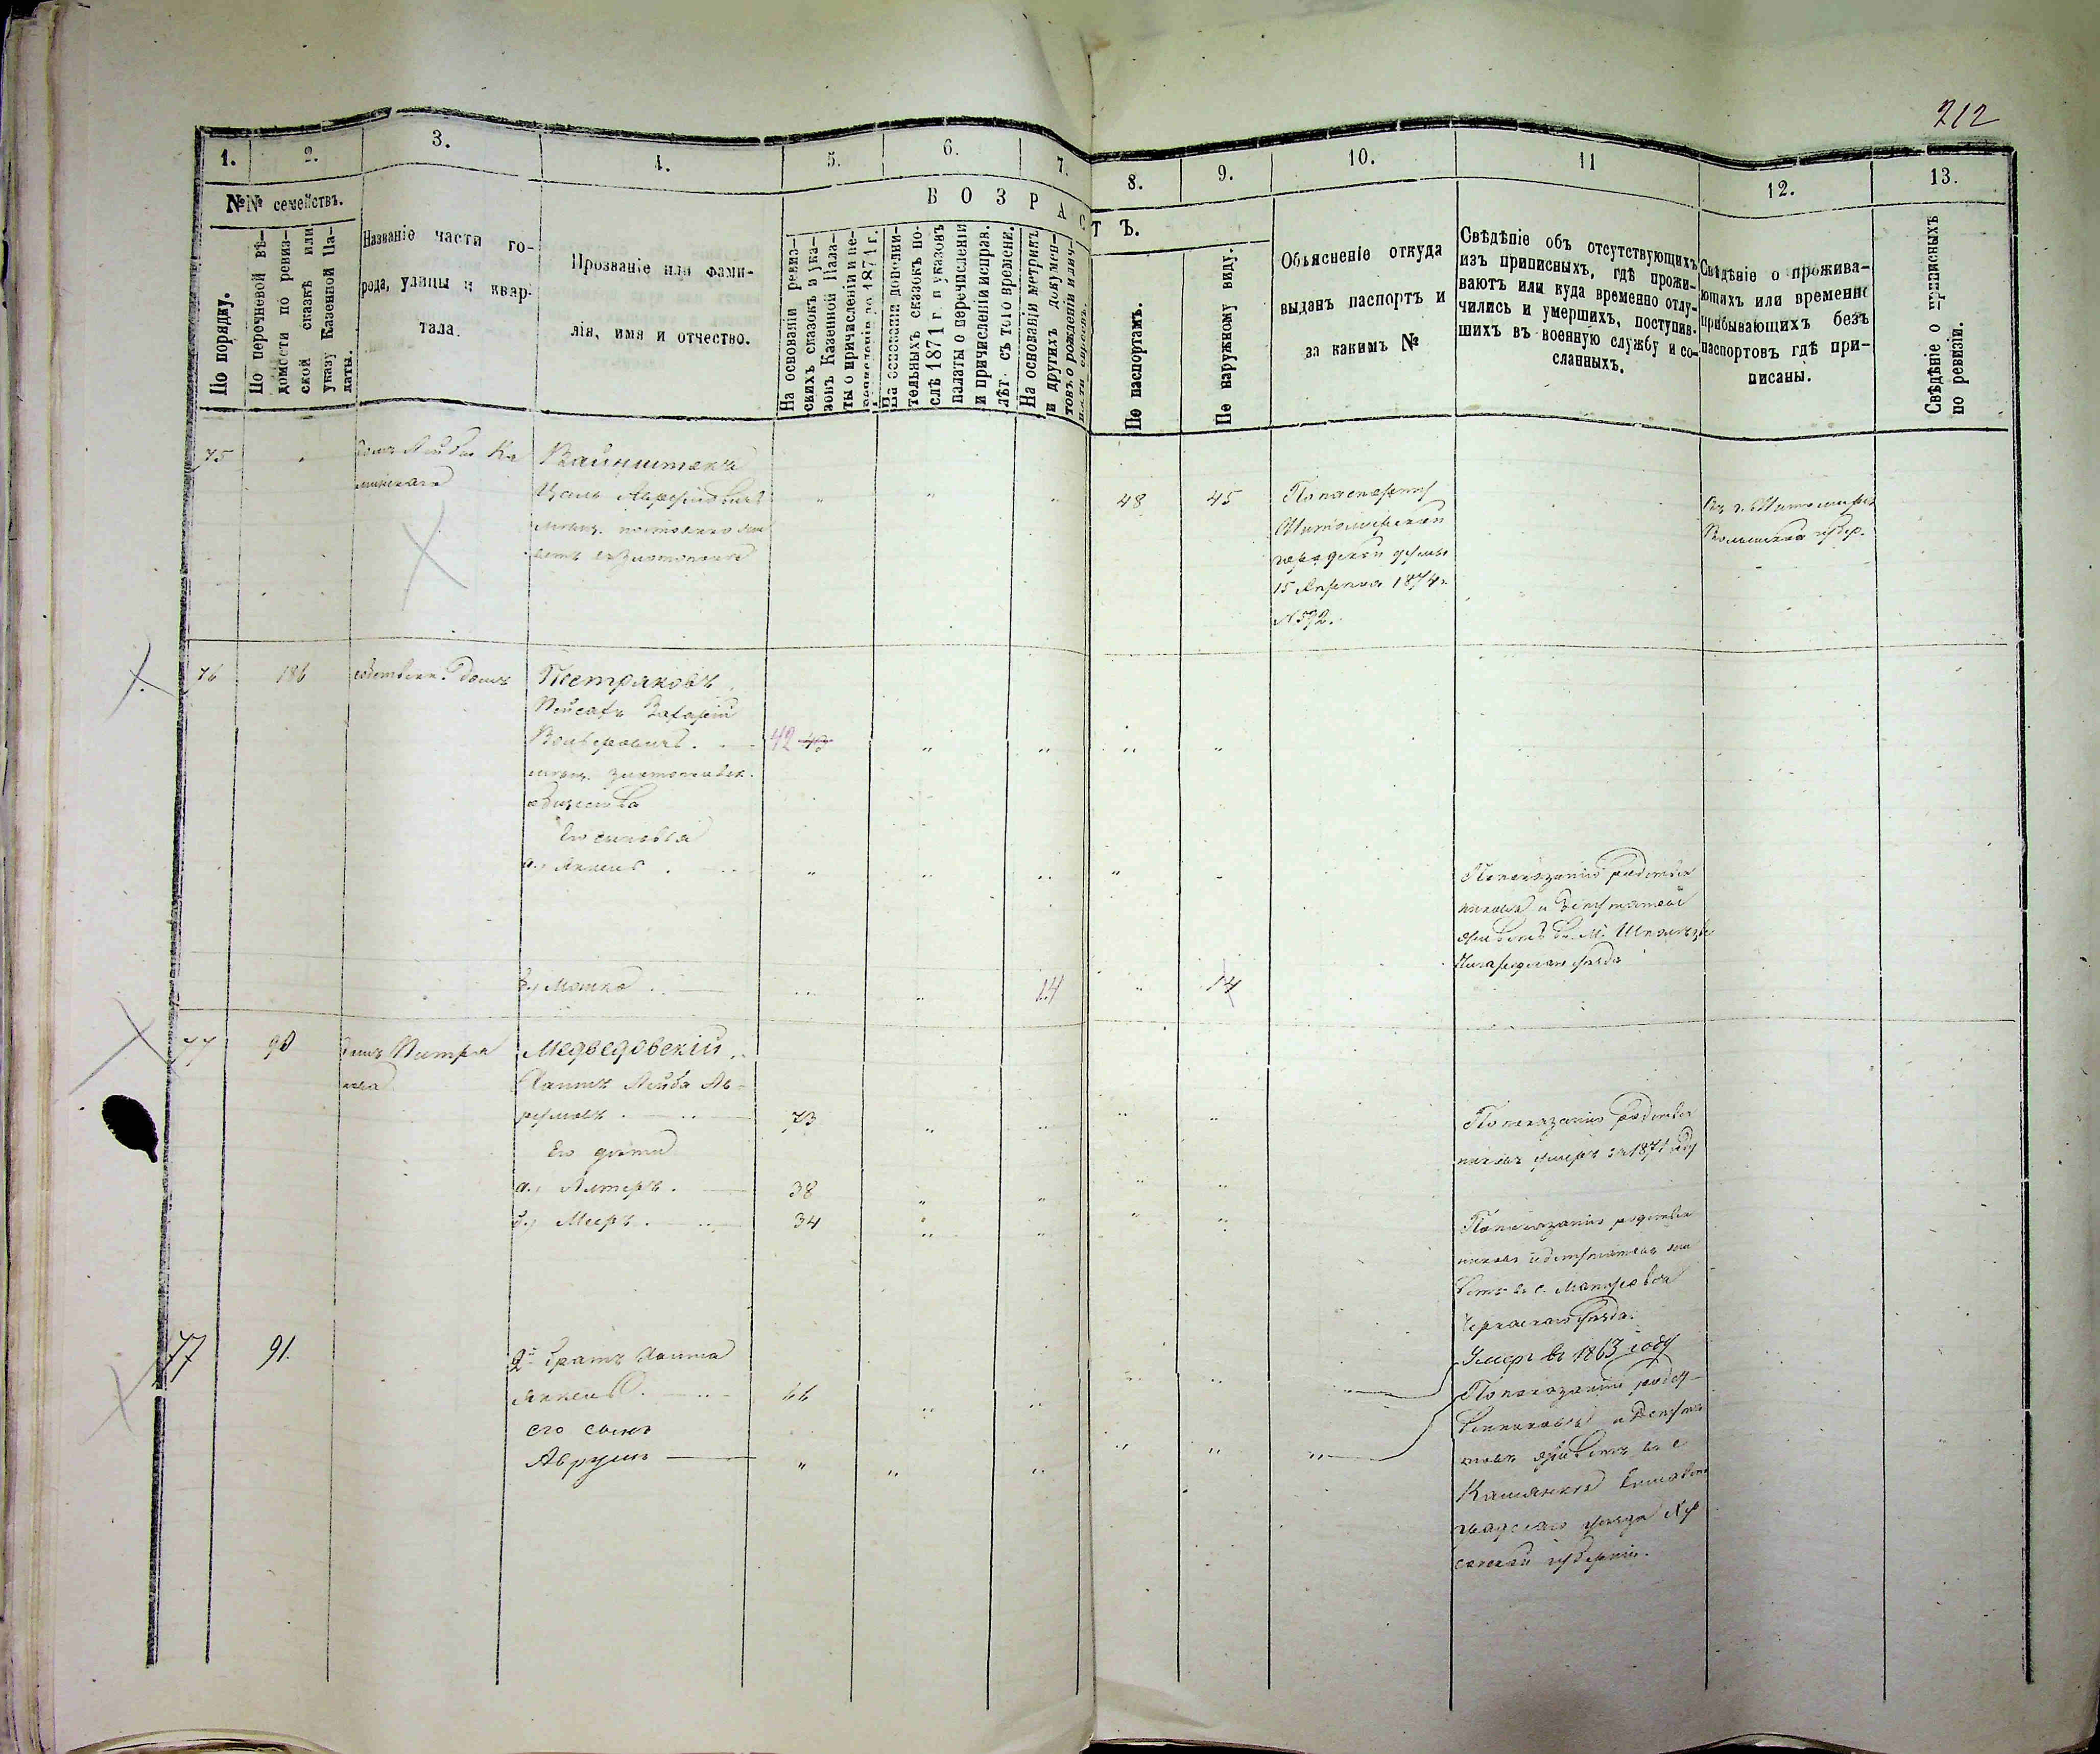 212
1.
2.
3.
4.
5.
6.
7.
8.
9.
10.
11
12.
13.
№№ семействъ.
ВОЗРАС
ТЪ.
По порядку.
По перечневой вѣ-
домости по ревиз-
ской сказкѣ или
указу Казенной Па-
латы.
Названіе части го-
рода, улицы и квар-
тала.
Прозваніе или фами-
лія, имя и отчество.
На основаніи ревиз-
скихъ сказокъ и ука-
зовъ Казенной Пала-
ты о причисленіи и пе-
до 1871 г.
На основаніи дополни-
тельныхъ сказокъ по-
слѣ 1871 г. и указовъ
палаты о перечисленіи
и причисленіи исправ.
лѣт. съ того времени.
На основаніи метрикъ
и другихъ докумен-
товъ о рожденіи и лич-
По паспортамъ.
По наружному виду.
Объясненіе откуда
выданъ паспортъ и
за какимъ №
Свѣдѣніе объ отсутствующихъ
изъ приписныхъ, гдѣ прожи-
ваютъ или куда временно отлу-
чились и умершихъ, поступив-
шихъ въ военную службу и со-
сланныхъ.
Свѣдѣніе о прожива-
ющихъ или временно
прибывающихъ безъ
паспортовъ гдѣ при-
писаны.
Свѣдѣніе о приписныхъ
по ревизіи.
75
домъ Лейбы Ка
минскаго
Вайнштекъ
мѣщ. постоянно жи
ветъ въ Златополѣ
48
45
По паспорту
Житомирской
городской думы
15 Апрѣля 1874 г.
№ 592.
Въ г. Житомирѣ
Волынской губер.
76
186
собствен. домъ
Пестряковъ
Пейсахъ
Вольфовичъ
42 43
мѣщ. златопольск.
общества
Его сыновья
а., Янкель
По показанію родствен
никовъ и
живетъ въ М. Шполѣ Зве
нигородскаго уѣзда
б., Мошко
14
14
77
90
домъ Пестря
кова
Медведовскій
Лейба Ав-
румовъ
73
По показанію родствен
никовъ умеръ въ 1871 году
Его дѣти
а., Алтеръ
38
б., Мееръ
34
По показанію родствен
никовъ и депутатовъ жи
ветъ въ с.
Черкаскаго уѣзда.
77
91.
2й братъ
Янкель
66
Умеръ въ 1863 году
его сынъ
Аврумъ
По показанію родст-
венниковъ и Депута
товъ живетъ въ с
Каменкѣ Елисавет
градскаго уѣзда Хер
сонской губерніи.